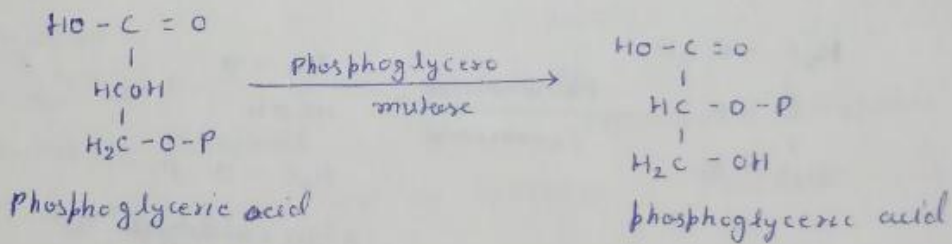 HO - C = O
|
HCOH
|
H₂C - O - P
Phosphoglyceric acid
Phosphoglycero
mutase
HO - C = O
|
HC - O - P
|
H₂C - OH
phosphoglyceric acid